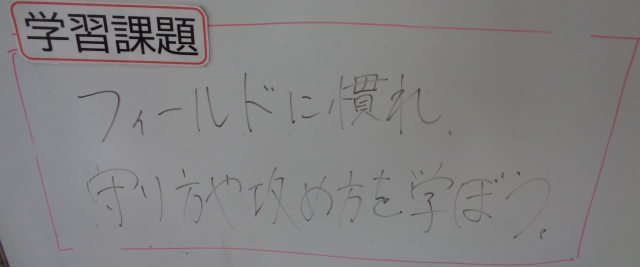 学習課題
フィールドに慣れ、
守り方や攻め方を学ぼう。